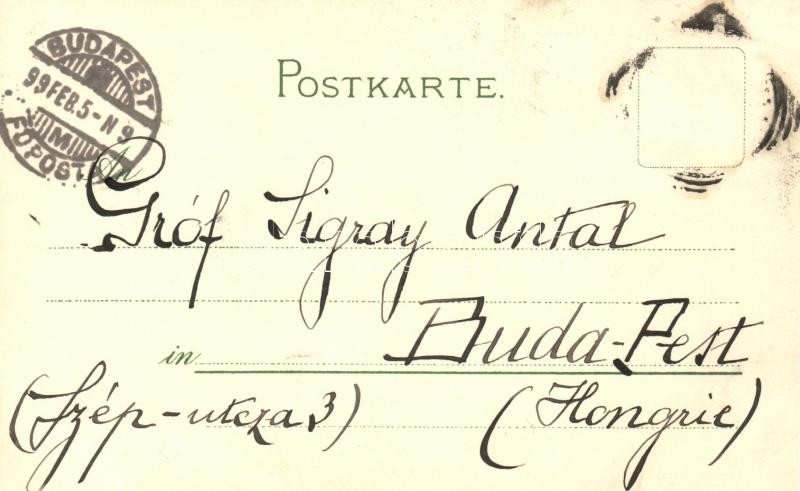 BUDAPEST
99 FEB. 5-N 9
M
FŐPOSTA
POSTKARTE.
An
Gróf Sigray Antal
in Buda-Pest
(Szép-utcza 3) (Hongrie)